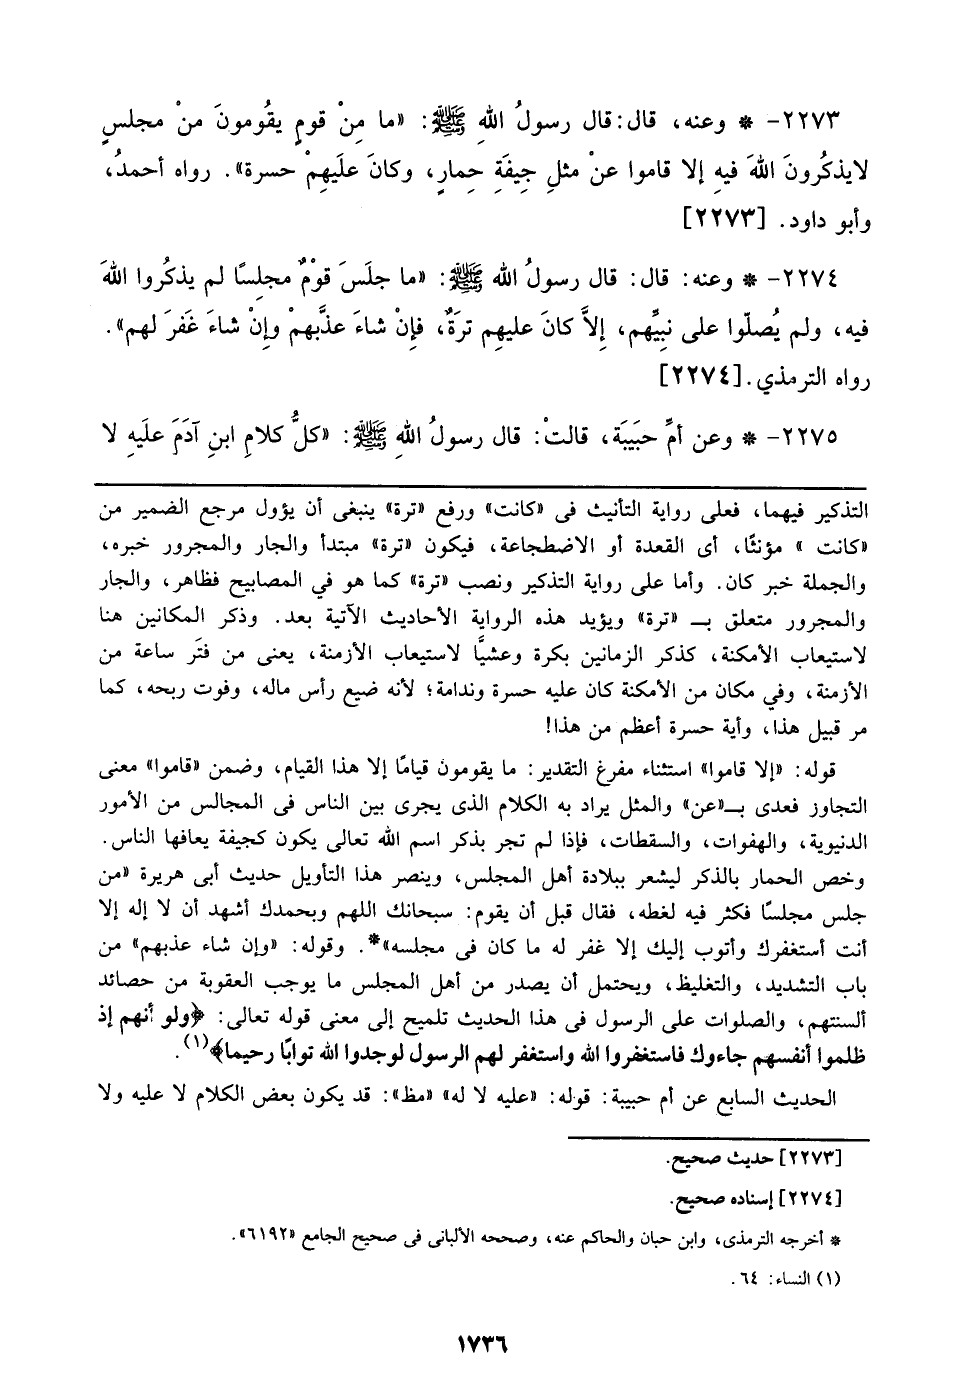 ٢٢٧٣- * وعنه، قال: قال رسولُ اللهِ ﷺ: «ما مِنْ قومٍ يقُومونَ منْ مجلسٍ
لايذكُرونَ اللهَ فيهِ إلا قاموا عنْ مثلِ جيفَةِ حِمارٍ، وكانَ علَيهِمْ حسرة». رواه أحمدُ،
وأبو داود. [٢٢٧٣]
٢٢٧٤- * وعنه: قال: قال رسولُ الله ﷺ: «ما جلَسَ قوْمٌ مجلِسًا لم يذكُروا اللهَ
فيه، ولم يُصلّوا على نبيِّهم، إلاَّ كانَ عليهِم ترَةٌ، فإنْ شاءَ عذَّبهمْ وإنْ شاءَ غَفرَ لهم».
رواه الترمذي. [٢٢٧٤]
٢٢٧٥- * وعن أمِّ حبَيبَة، قالتْ: قال رسولُ اللهِ ﷺ: «كلُّ كلامِ ابنِ آدَمَ علَيهِ لا
التذكير فيهما، فعلى رواية التأنيث فى «كانت» ورفع «ترة» ينبغى أن يؤول مرجع الضمير من
«كانت » مؤنثًا، أى القعدة أو الاضطجاعة، فيكون «ترة» مبتدأ والجار والمجرور خبره،
والجملة خبر كان. وأما على رواية التذكير ونصب «ترة» كما هو في المصابيح فظاهر، والجار
والمجرور متعلق بـ «ترة» ويؤيد هذه الرواية الأحاديث الآتية بعد. وذكر المكانين هنا
لاستيعاب الأمكنة، كذكر الزمانين بكرة وعشيًّا لاستيعاب الأزمنة، يعنى من فتَر ساعة من
الأزمنة، وفي مكان من الأمكنة كان عليه حسرة وندامة؛ لأنه ضيع رأس ماله، وفوت ربحه، كما
مر قبيل هذا، وأية حسرة أعظم من هذا!
قوله: «إلا قاموا» استثناء مفرغ التقدير: ما يقومون قيامًا إلا هذا القيام، وضمن «قاموا» معنى
التجاوز فعدى بـ«عن» والمثل يراد به الكلام الذى يجرى بين الناس فى المجالس من الأمور
الدنيوية، والهفوات، والسقطات، فإذا لم تجر بذكر اسم الله تعالى يكون كجيفة يعافها الناس.
وخص الحمار بالذكر ليشعر ببلادة أهل المجلس، وينصر هذا التأويل حديث أبى هريرة «من
جلس مجلسًا فكثر فيه لغطه، فقال قبل أن يقوم: سبحانك اللهم وبحمدك أشهد أن لا إله إلا
أنت أستغفرك وأتوب إليك إلا غفر له ما كان فى مجلسه»*. وقوله: «وإن شاء عذبهم» من
باب التشديد، والتغليظ، ويحتمل أن يصدر من أهل المجلس ما يوجب العقوبة من حصائد
ألسنتهم، والصلوات على الرسول فى هذا الحديث تلميح إلى معنى قوله تعالى: ﴿ولو أنهم إذ
ظلموا أنفسهم جاءوك فاستغفروا الله واستغفر لهم الرسول لوجدوا الله توابًا رحيما﴾(١).
الحديث السابع عن أم حبيبة: قوله: «عليه لا له» «مظ»: قد يكون بعض الكلام لا عليه ولا
[٢٢٧٣] حديث صحيح.
[٢٢٧٤] إسناده صحيح.
* أخرجه الترمذى، وابن حبان والحاكم عنه، وصححه الألبانى فى صحيح الجامع «٦١٩٢».
(١) النساء: ٦٤.
١٧٣٦